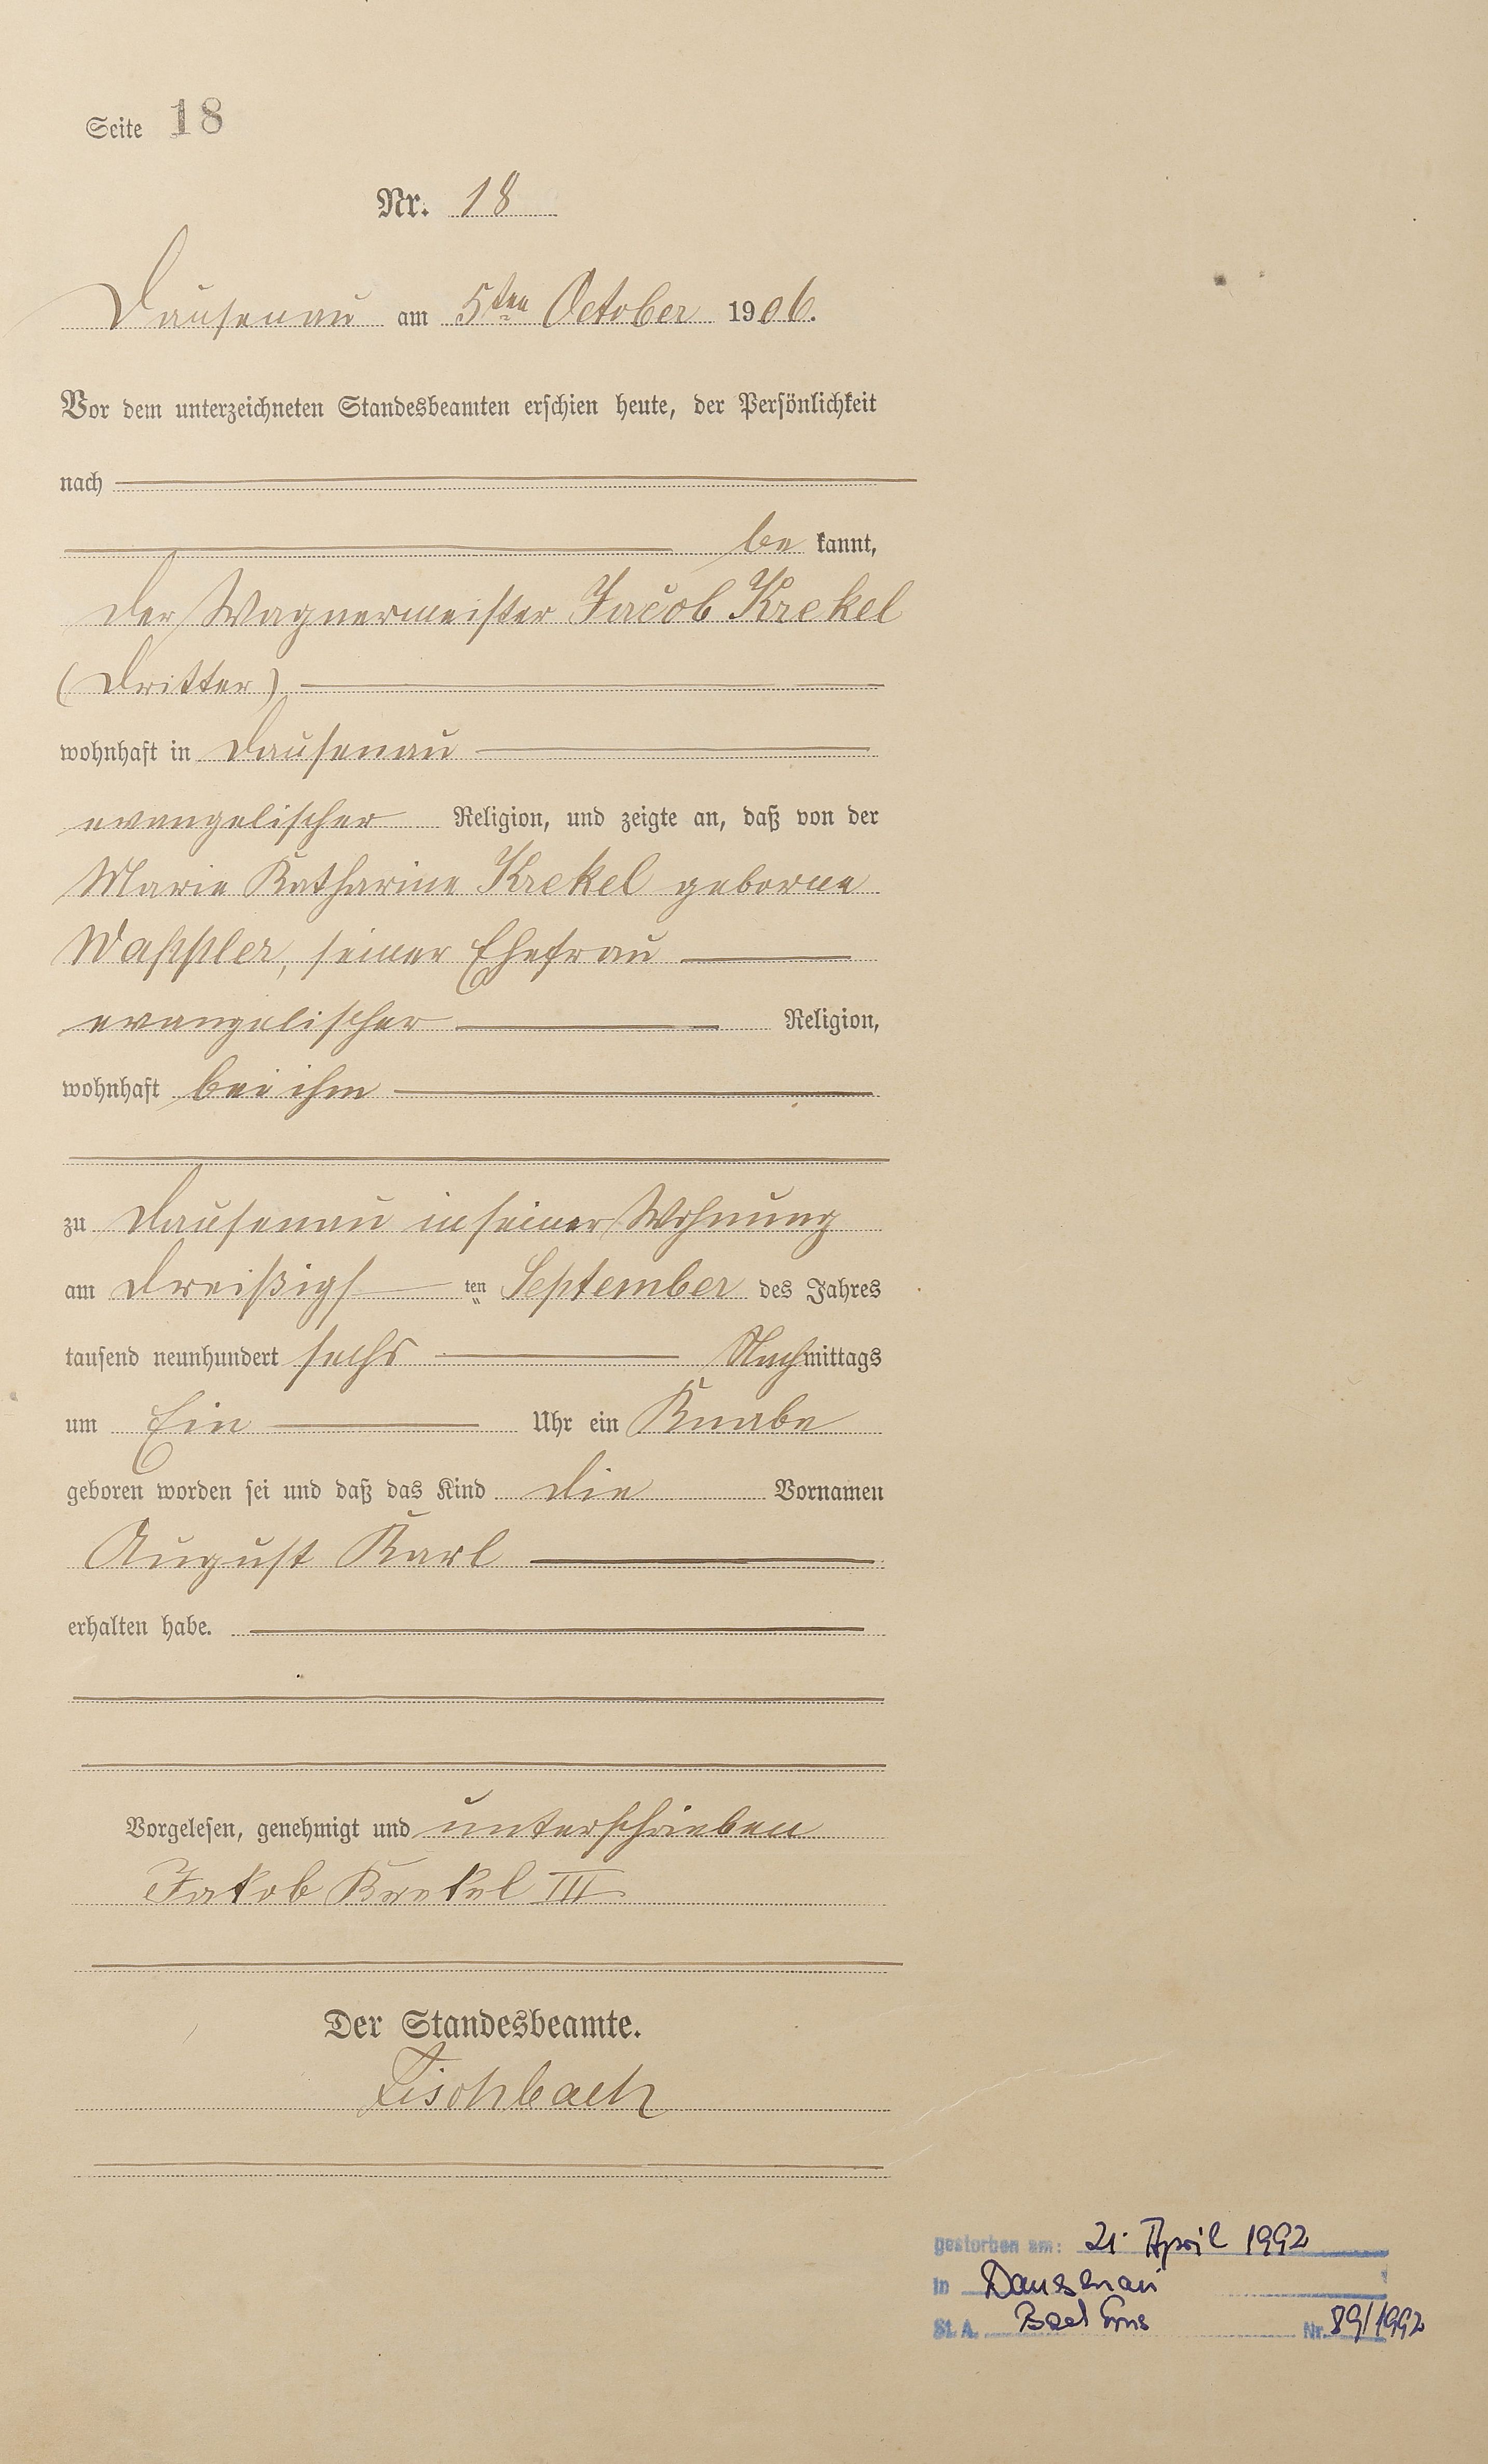 Seite 18
Nr. 18
Dausenau am 5ten October 1906.
Vor dem unterzeichneten Standesbeamten erschien heute, der Persönlichkeit
nach
be kannt,
der Wagnermeister Jacob Krekel
(Dritter)
wohnhaft in Dausenau
evangelischer Religion, und zeigte an, daß von der
Marie Katharine Krekel geborne
seiner Ehefrau
evangelischer Religion,
wohnhaft bei ihm
zu Dausenau in seiner Wohnung
am dreißigs ten September des Jahres
tausend neunhundert sechs Nachmittags
um Ein Uhr ein Knabe
geboren worden sei und daß das Kind die Vornamen
August Karl
erhalten habe.
Vorgelesen, genehmigt und unterschrieben
Jakob Krekel III
Der Standesbeamte.
Fischbach
gestorben am: 21. April 1992
in Dausenau
St. A. Bad Ems Nr. 89/1992